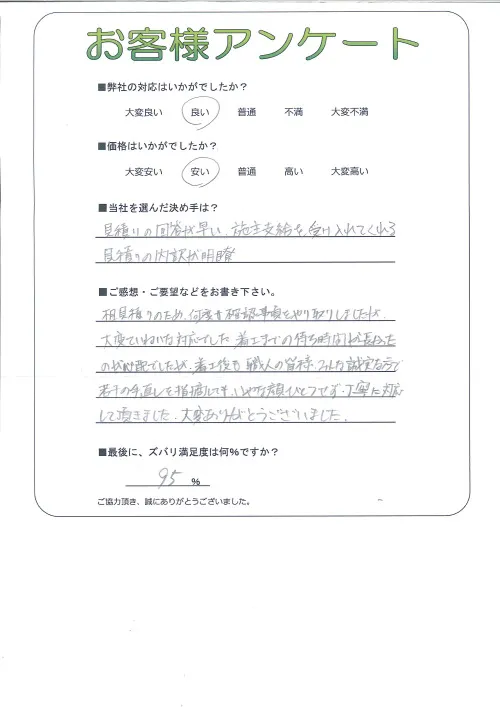 お客様アンケート
■弊社の対応はいかがでしたか？
大変良い 良い 普通 不満 大変不満
■価格はいかがでしたか？
大変安い 安い 普通 高い 大変高い
■当社を選んだ決め手は？
見積りの回答が早い、施主支給を受け入れてくれる
見積りの内訳が明瞭
■ご感想・ご要望などをお書き下さい。
相見積りのため、何度も確認事項をやり取りしましたが、
大変ていねいな対応でした。着工までの待ち時間が長かった
のが心配でしたが、着工後も職人の皆様、みんな誠実な方で
若干の手直しを指摘しても、いやな顔ひとつせず、丁寧に対応
して頂きました。大変ありがとうございました。
■最後に、ズバリ満足度は何％ですか？
95 ％
ご協力頂き、誠にありがとうございました。